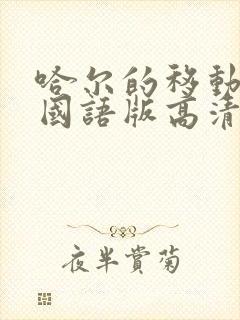 哈尔的移動
國語版高清
夜半賞菊